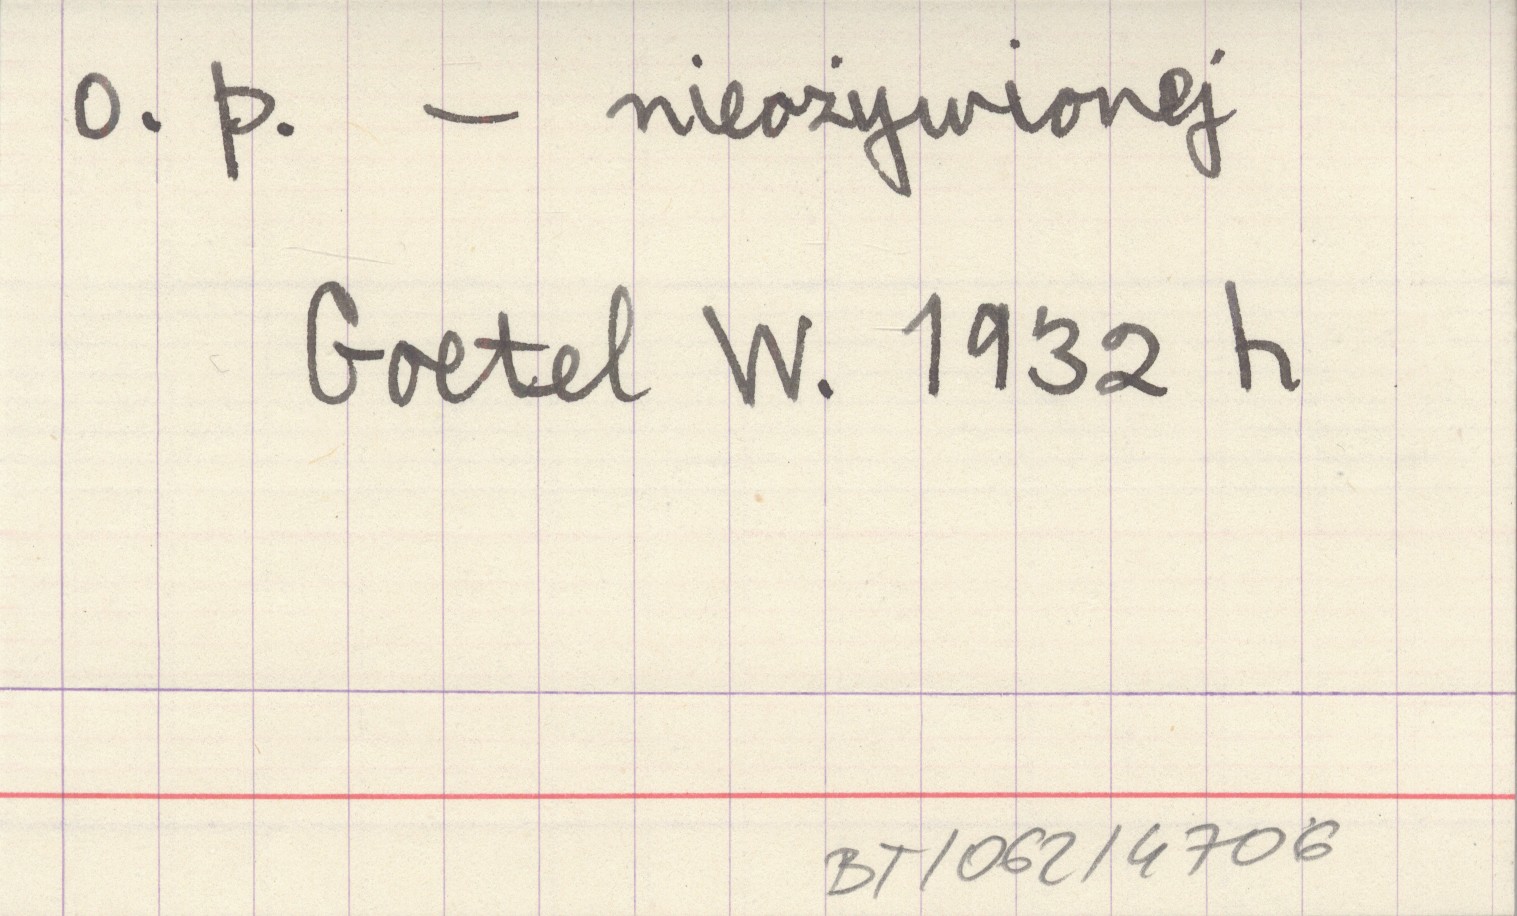 o. p. – nieożywionej
Goetel W. 1932 h
BT/062/4706